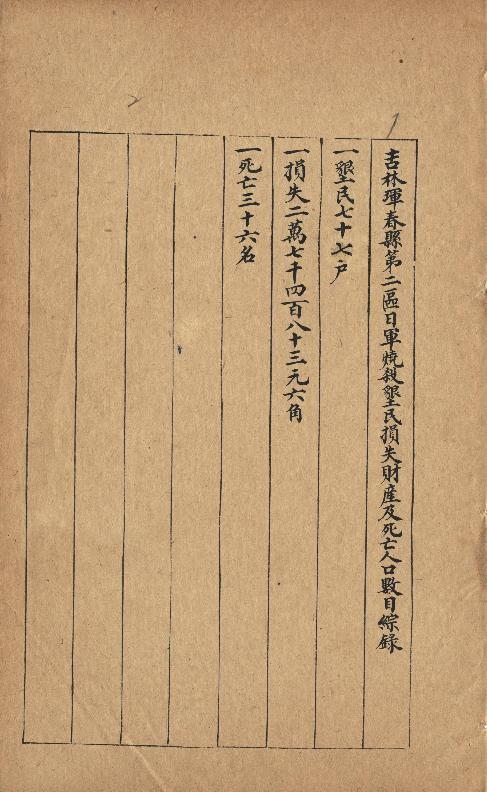 吉林琿春縣第二區日軍燒殺墾民損失財産及死亡人口數目綜錄
一墾民七十七户
一損失二萬七千四百八十三元六角
一死亡三十六名